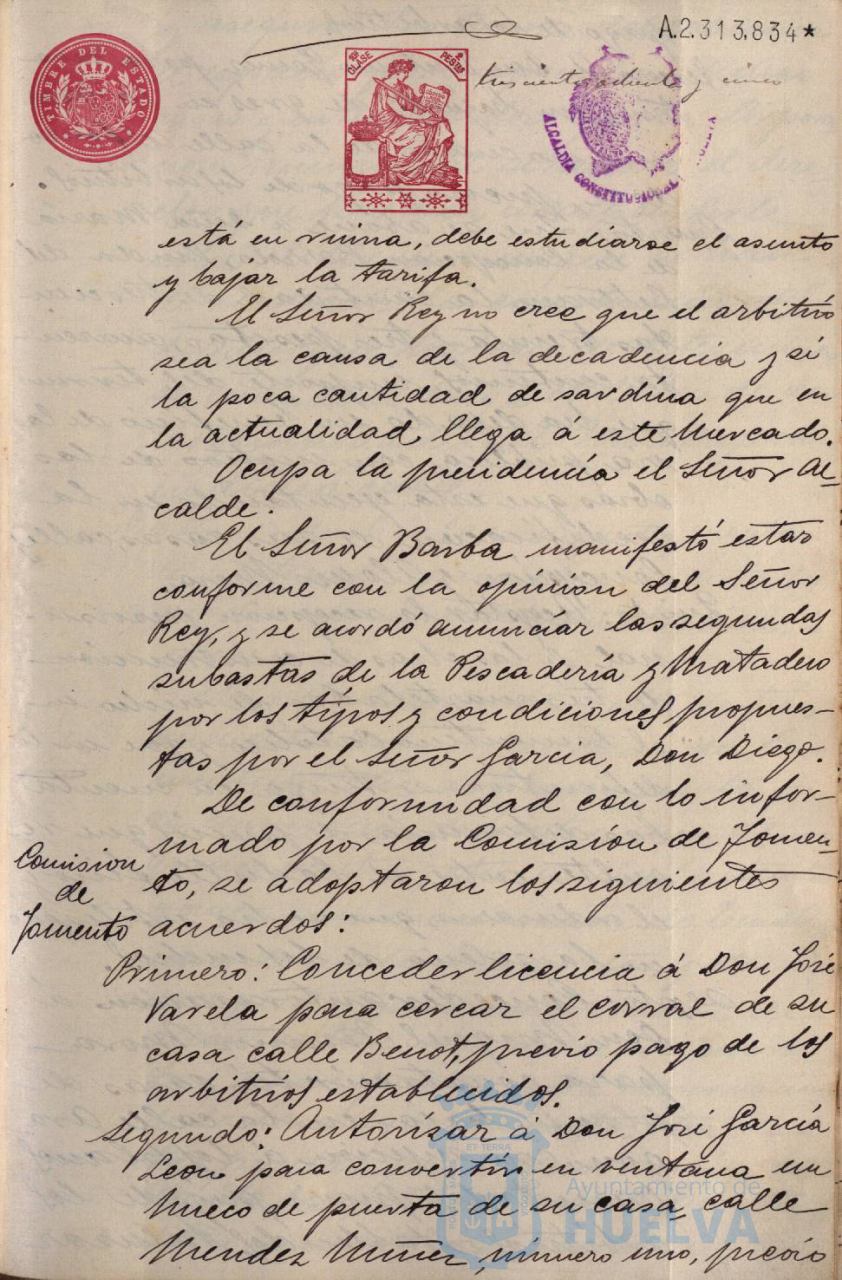 A.2.313,834*
TIMBRE DEL ESTADO
CLASE
PESETAS
trescientos ochenta y cinco
ALCALDIA CONSTITUCIONAL
está en ruina, debe estudiarse el asunto
y bajar la tarifa.
El Señor Rey no cree que el arbitrio
sea la causa de la decadencia y si
la poca cantidad de sardina que en
la actualidad llega á este Mercado.
Ocupa la presidencia el Señor Al-
calde.
El Señor Barba manifestó estar
conforme con la opinion del Señor
Rey, y se acordó anunciar las segundas
subastas de la Pescadería y Matadero
por los tipos y condiciones propues-
tas por el Señor Garcia, Don Diego.
De conformidad con lo infor-
mado por la Comisión de Fomen-
to, se adoptaron los siguientes
acuerdos:
Comision
de
Fomento
Primero: Conceder licencia á Don José
Varela para cercar el corral de su
casa calle Benot, previo pago de los
arbitrios establecidos.
Segundo: Autorizar á Don José García
Leon para convertir en ventana un
hueco de puerta de su casa calle
Mendez Nuñez, número uno, previo
Ayuntamiento de
HUELVA